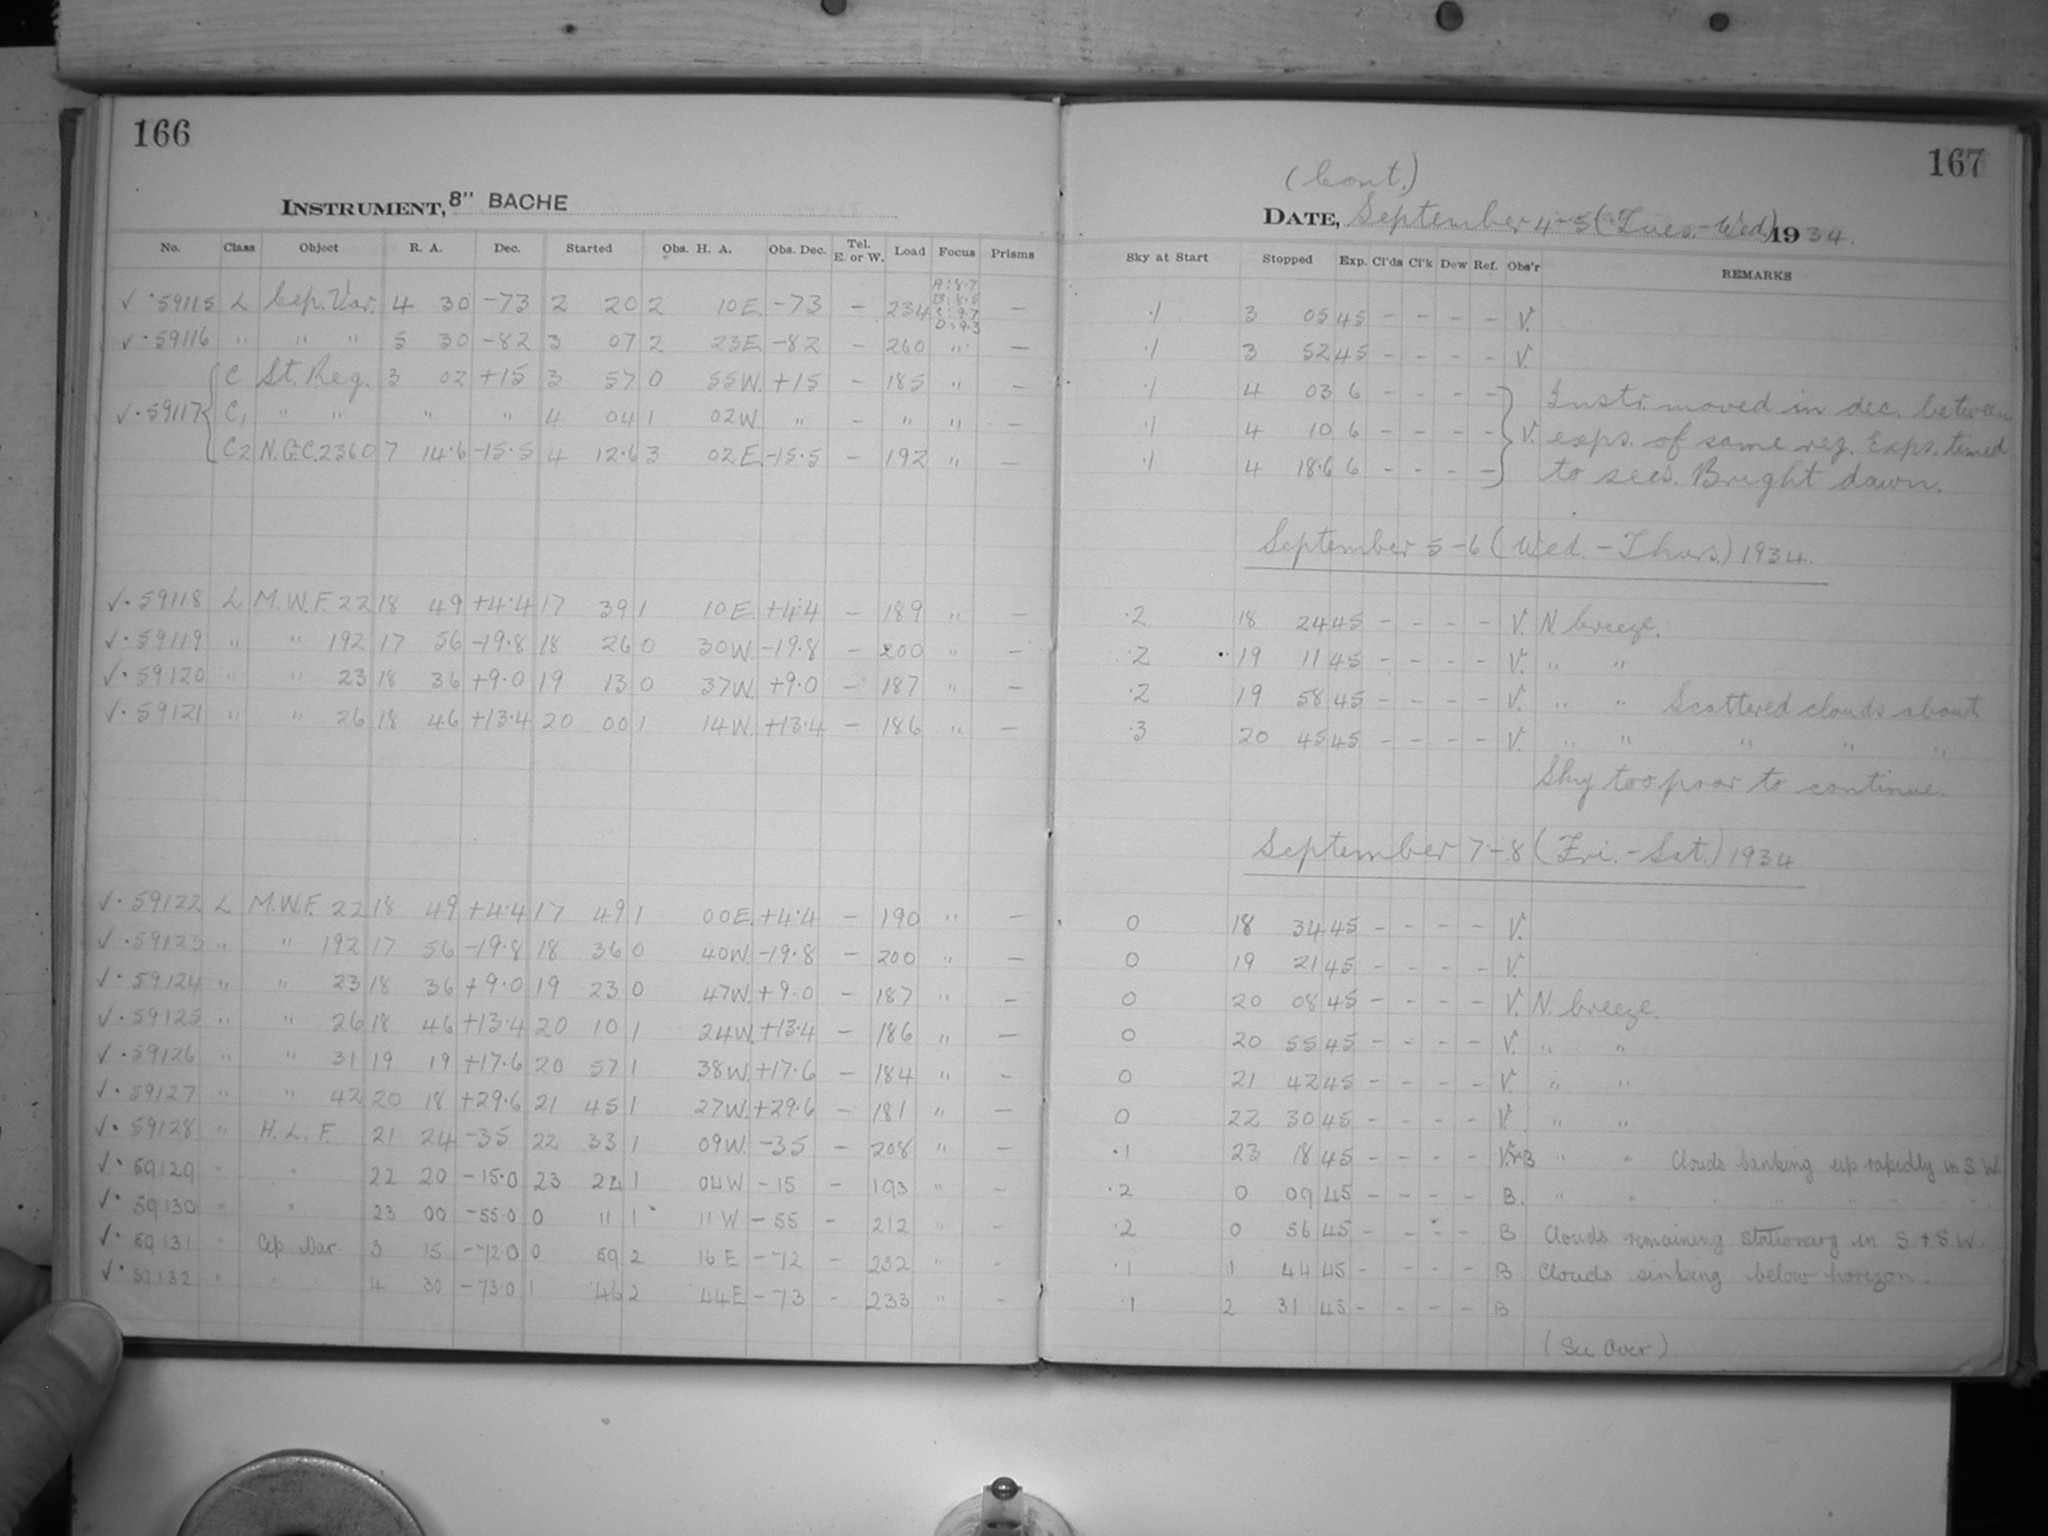 166
INSTRUMENT, 8" BACHE
No. Class Object R. A. Dec. Started Obs. H. A. Obs. Dec. Tel. E. or W. Load Focus Prisms
✓·59115 L Cep. Var. 4 30 -73 2 20 2 10E. -73 - 234 A:8.7 B:8.5 C:9.7 D:9.3 -
✓·59116 " " " 5 30 -82 3 07 2 23E -82 - 260 " -
C St. Reg. 3 02 +15 3 57 0 55W. +15 - 185 " -
✓·59117 { C1 " " " " 4 04 1 02W " - " " -
C2 N.G.C.2360 7 14.6 -15.5 4 12.6 3 02E. -15.5 - 192 " -
✓·59118 L M.W.F. 22 18 49 +4.4 17 39 1 10E +4.4 - 189 " -
✓·59119 " " 192 17 56 -19.8 18 26 0 30W. -19.8 - 200 " -
✓·59120 " " 23 18 36 +9.0 19 13 0 37W. +9.0 - 187 " -
✓·59121 " " 26 18 46 +13.4 20 00 1 14W. +13.4 - 186 " -
✓·59122 L M.W.F. 22 18 49 +4.4 17 49 1 00E. +4.4 - 190 " -
✓·59123 " " 192 17 56 -19.8 18 36 0 40W. -19.8 - 200 " -
✓·59124 " " 23 18 36 +9.0 19 23 0 47W. +9.0 - 187 " -
✓·59125 " " 26 18 46 +13.4 20 10 1 24W. +13.4 - 186 " -
✓·59126 " " 31 19 19 +17.6 20 57 1 38W. +17.6 - 184 " -
✓·59127 " " 42 20 18 +29.6 21 45 1 27W. +29.6 - 181 " -
✓·59128 " H.L.F. 21 24 -35 22 33 1 09W. -35 - 208 " -
✓·59129 " " 22 20 -15.0 23 24 1 04W -15 - 193 " -
✓·59130 " " 23 00 -55.0 0 11 1 11W -55 - 212 " -
✓·59131 " Cep Var. 3 15 -72.0 0 59 2 16E -72 - 232 " -
✓·59132 " " 4 30 -73.0 1 46 2 44E -73 - 233 " -
167
(Cont.)
DATE, September 4-5 (Tues.-Wed.) 1934.
Sky at Start Stopped Exp. Cl'ds Cl'k Dew Ref. Obs'r REMARKS
.1 3 05 45 - - - - V.
.1 3 52 45 - - - - V.
.1 4 03 6 - - - - Instr. moved in dec. between
.1 4 10 6 - - - - } V. exps. of same reg. Exps. timed
.1 4 18.6 6 - - - - to secs. Bright dawn.
September 5-6 (Wed.-Thurs.) 1934.
.2 18 24 45 - - - - V. N. breeze.
.2 19 11 45 - - - - V. " "
.2 19 58 45 - - - - V. " " Scattered clouds about
.3 20 45 45 - - - - V. " " " " "
Sky too poor to continue.
September 7-8 (Fri.-Sat.) 1934.
0 18 34 45 - - - - V.
0 19 21 45 - - - - V.
0 20 08 45 - - - - V. N. breeze.
0 20 55 45 - - - - V. " "
0 21 42 45 - - - - V. " "
0 22 30 45 - - - - V. " "
.1 23 18 45 - - - - V.+B " " Clouds banking up rapidly in S.W.
.2 0 09 45 - - - - B. " " " " " " "
.2 0 56 45 - - - - B Clouds remaining stationary in S + S.W.
.1 1 44 45 - - - - B Clouds sinking below horizon.
.1 2 31 45 - - - - B
(See Over)